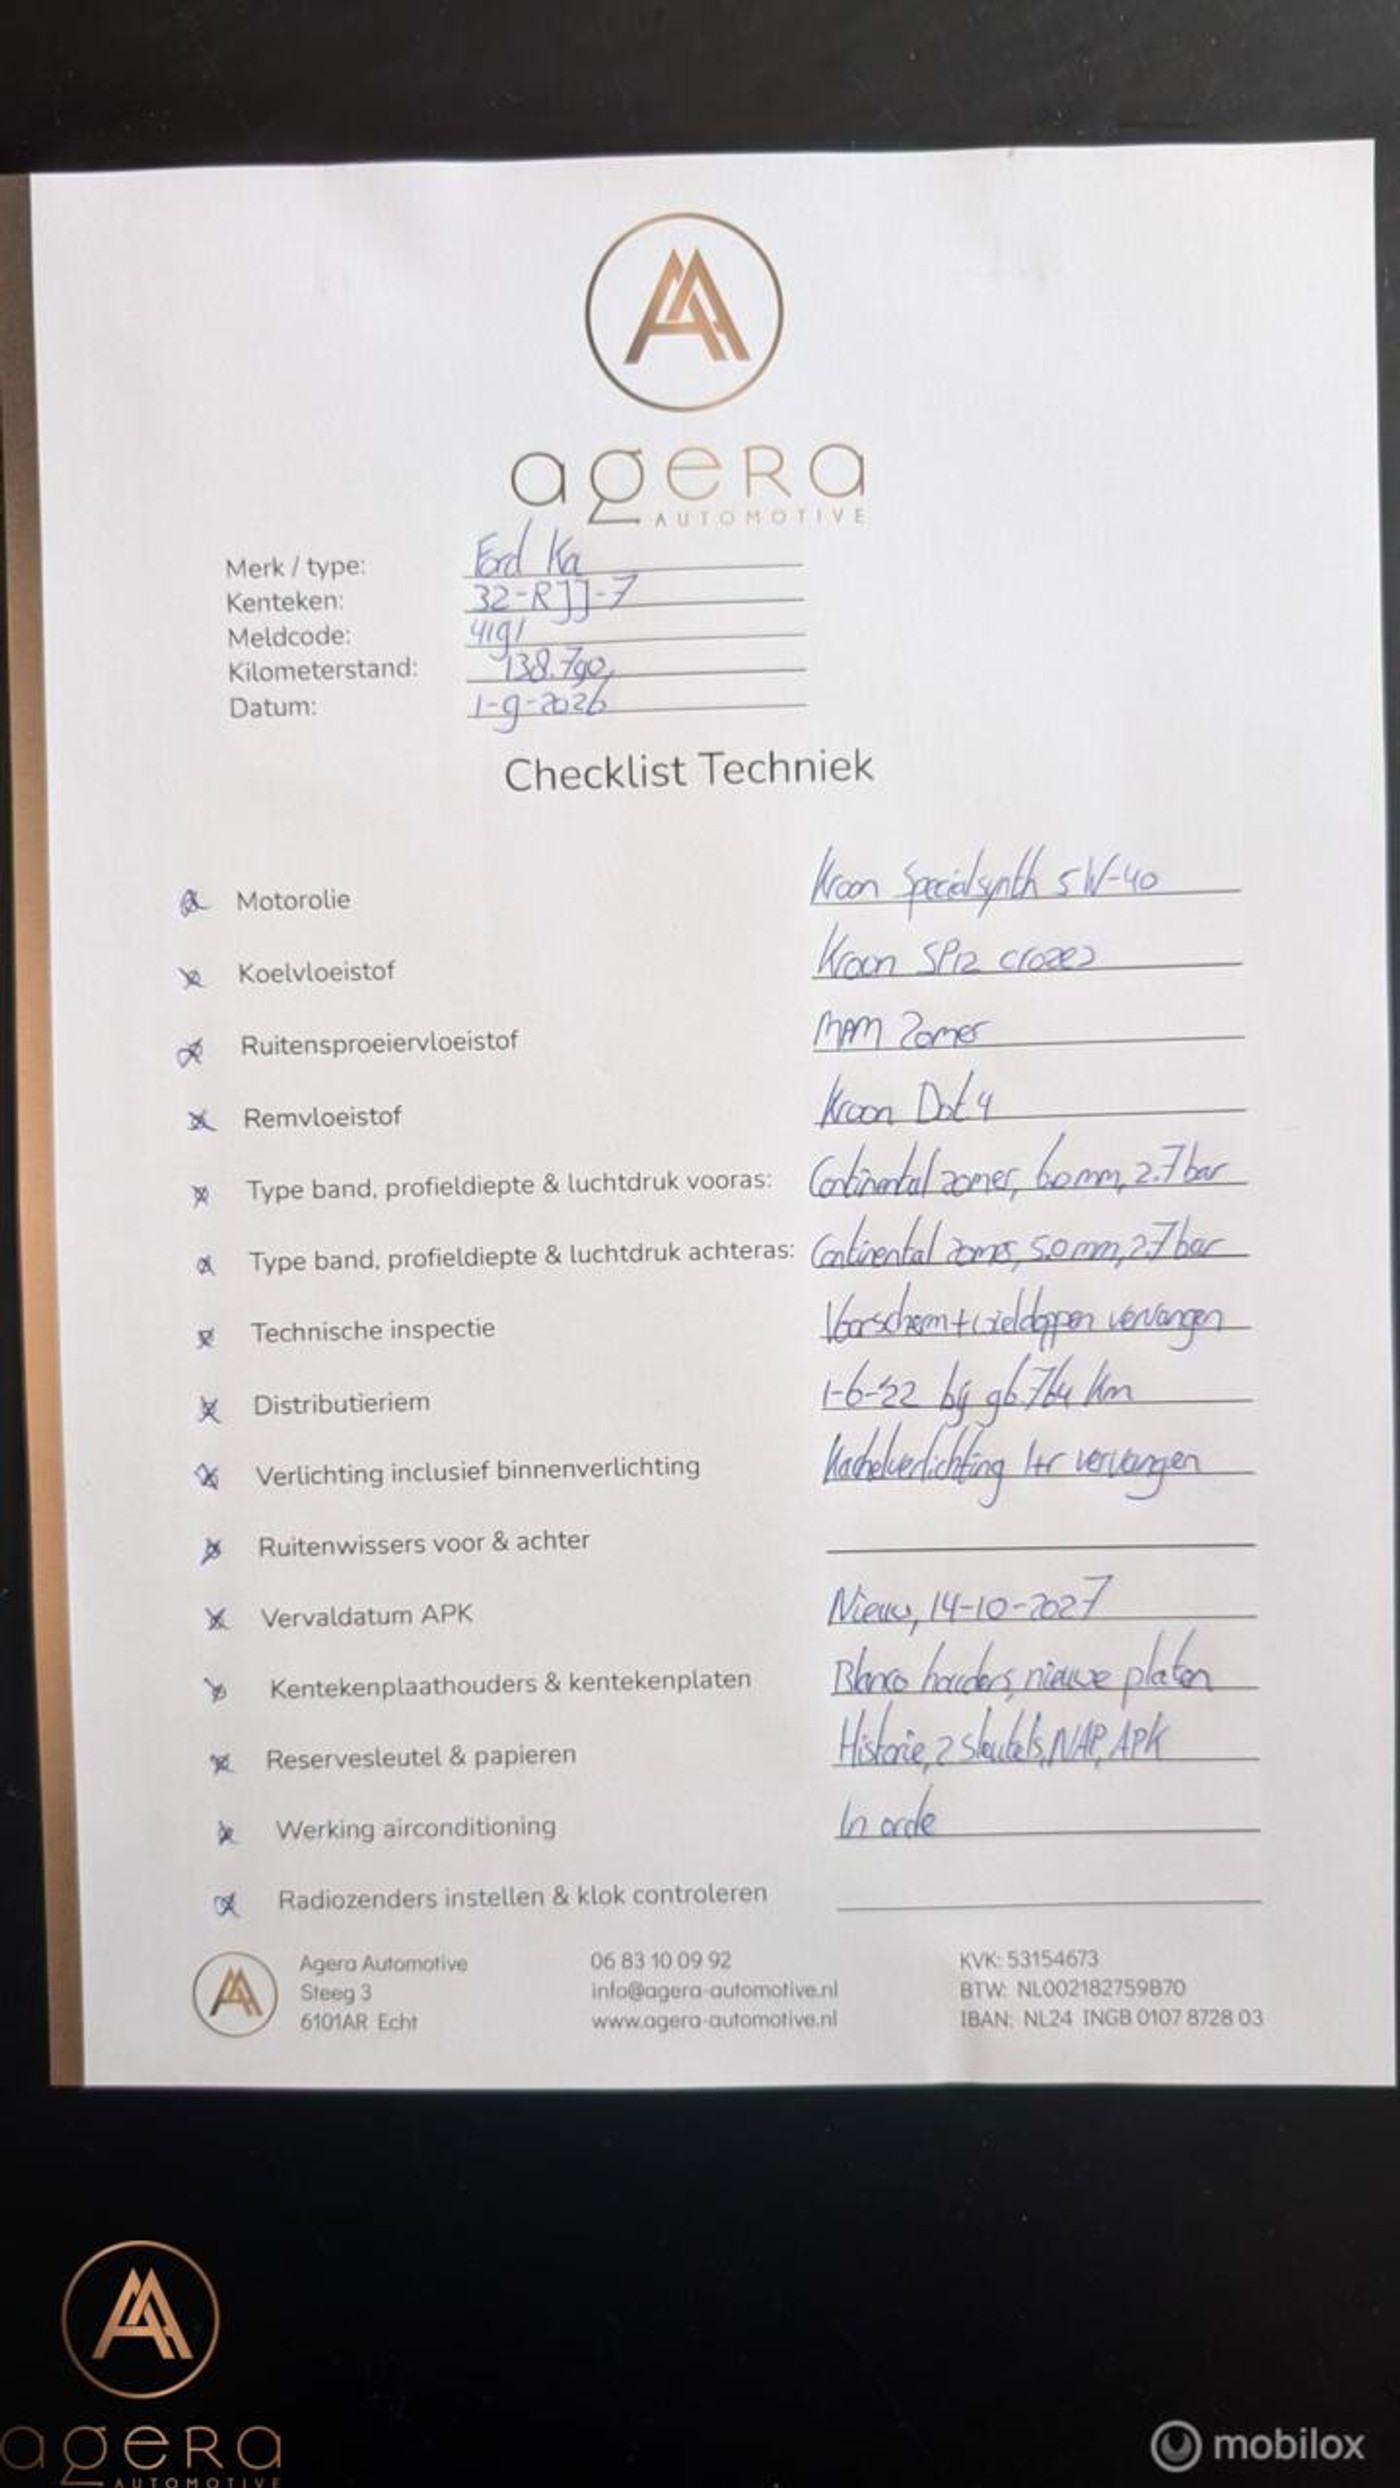 agera
AUTOMOTIVE
Merk / type: Ford Ka
Kenteken: 32-RJJ-7
Meldcode: 4191
Kilometerstand: 138.790
Datum: 1-9-2026
Checklist Techniek
Motorolie Kroon Specialsynth 5W-40
Koelvloeistof Kroon SP12
Ruitensproeiervloeistof MAM Zomer
Remvloeistof Kroon Dot 4
Type band, profieldiepte & luchtdruk vooras: Continental zomer, 6.0 mm, 2.7 bar
Type band, profieldiepte & luchtdruk achteras: Continental zomer, 5.0 mm, 2.7 bar
Technische inspectie Voorscherm + wieldoppen vervangen
Distributieriem 1-6-'22 bij 96.764 km
Verlichting inclusief binnenverlichting Kachelverlichting l+r vervangen
Ruitenwissers voor & achter
Vervaldatum APK Nieuw, 14-10-2027
Kentekenplaathouders & kentekenplaten Blanco houders, nieuwe platen
Reservesleutel & papieren Historie, 2 sleutels, NAP, APK
Werking airconditioning In orde
Radiozenders instellen & klok controleren
Agera Automotive 06 83 10 09 92 KVK: 53154673
Steeg 3 info@agera-automotive.nl BTW: NL002182759B70
6101AR Echt www.agera-automotive.nl IBAN: NL24 INGB 0107 8728 03
agera
AUTOMOTIVE
mobilox